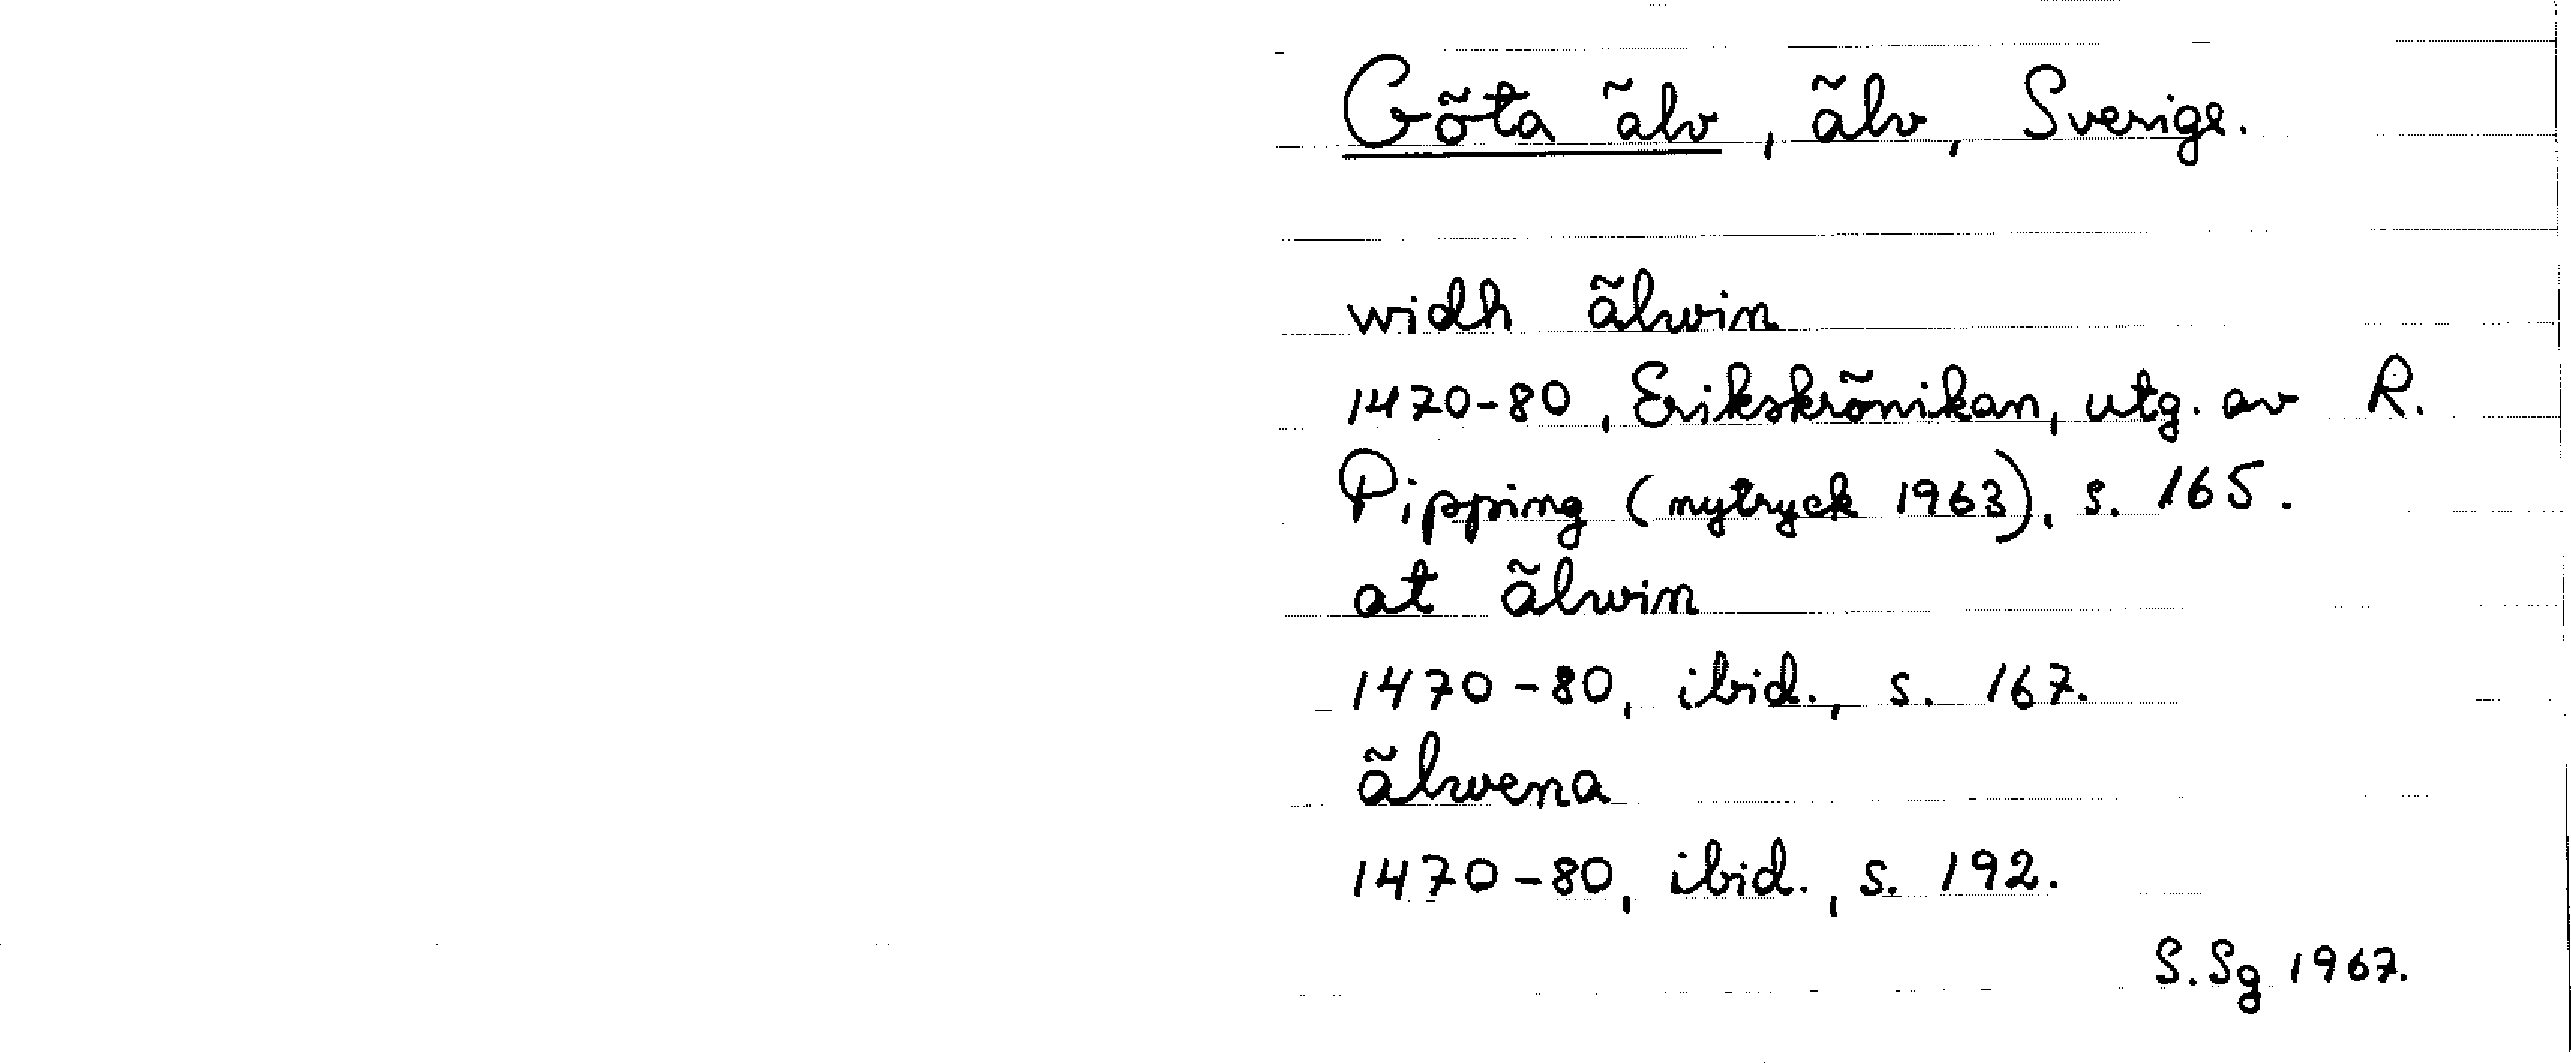 Göta älv, älv, Sverige.
widh älwin
1470-80, Erikskrönikan, utg. av R.
Pipping (nytryck 1963), s. 165.
at älwin
1470-80, ibid., s. 167.
älwena
1470-80, ibid., s. 192.
S. Sg 1967.